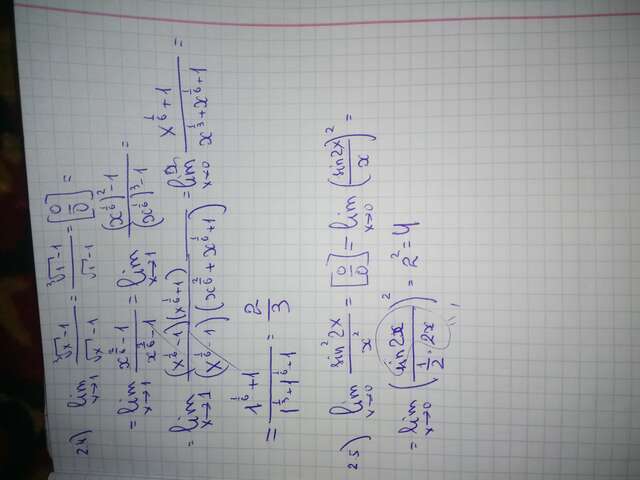 24) lim x→1 (∛x - 1)/(√x - 1) = (∛1 - 1)/(√1 - 1) = [0/0] =
= lim x→1 (x^(2/6) - 1)/(x^(3/6) - 1) = lim x→1 ((x^(1/6))^2 - 1)/((x^(1/6))^3 - 1) =
= lim x→1 ((x^(1/6) - 1)(x^(1/6) + 1))/((x^(1/6) - 1)(x^(2/6) + x^(1/6) + 1)) = lim x→0 (x^(1/6) + 1)/(x^(1/3) + x^(1/6) + 1) =
= (1^(1/6) + 1)/(1^(1/3) + 1^(1/6) + 1) = 2/3
25) lim x→0 (sin^2 2x)/(x^2) = [0/0] = lim x→0 ((sin2x)/x)^2 =
= lim x→0 ((sin2x)/(1/2 · 2x))^2 = 2^2 = 4